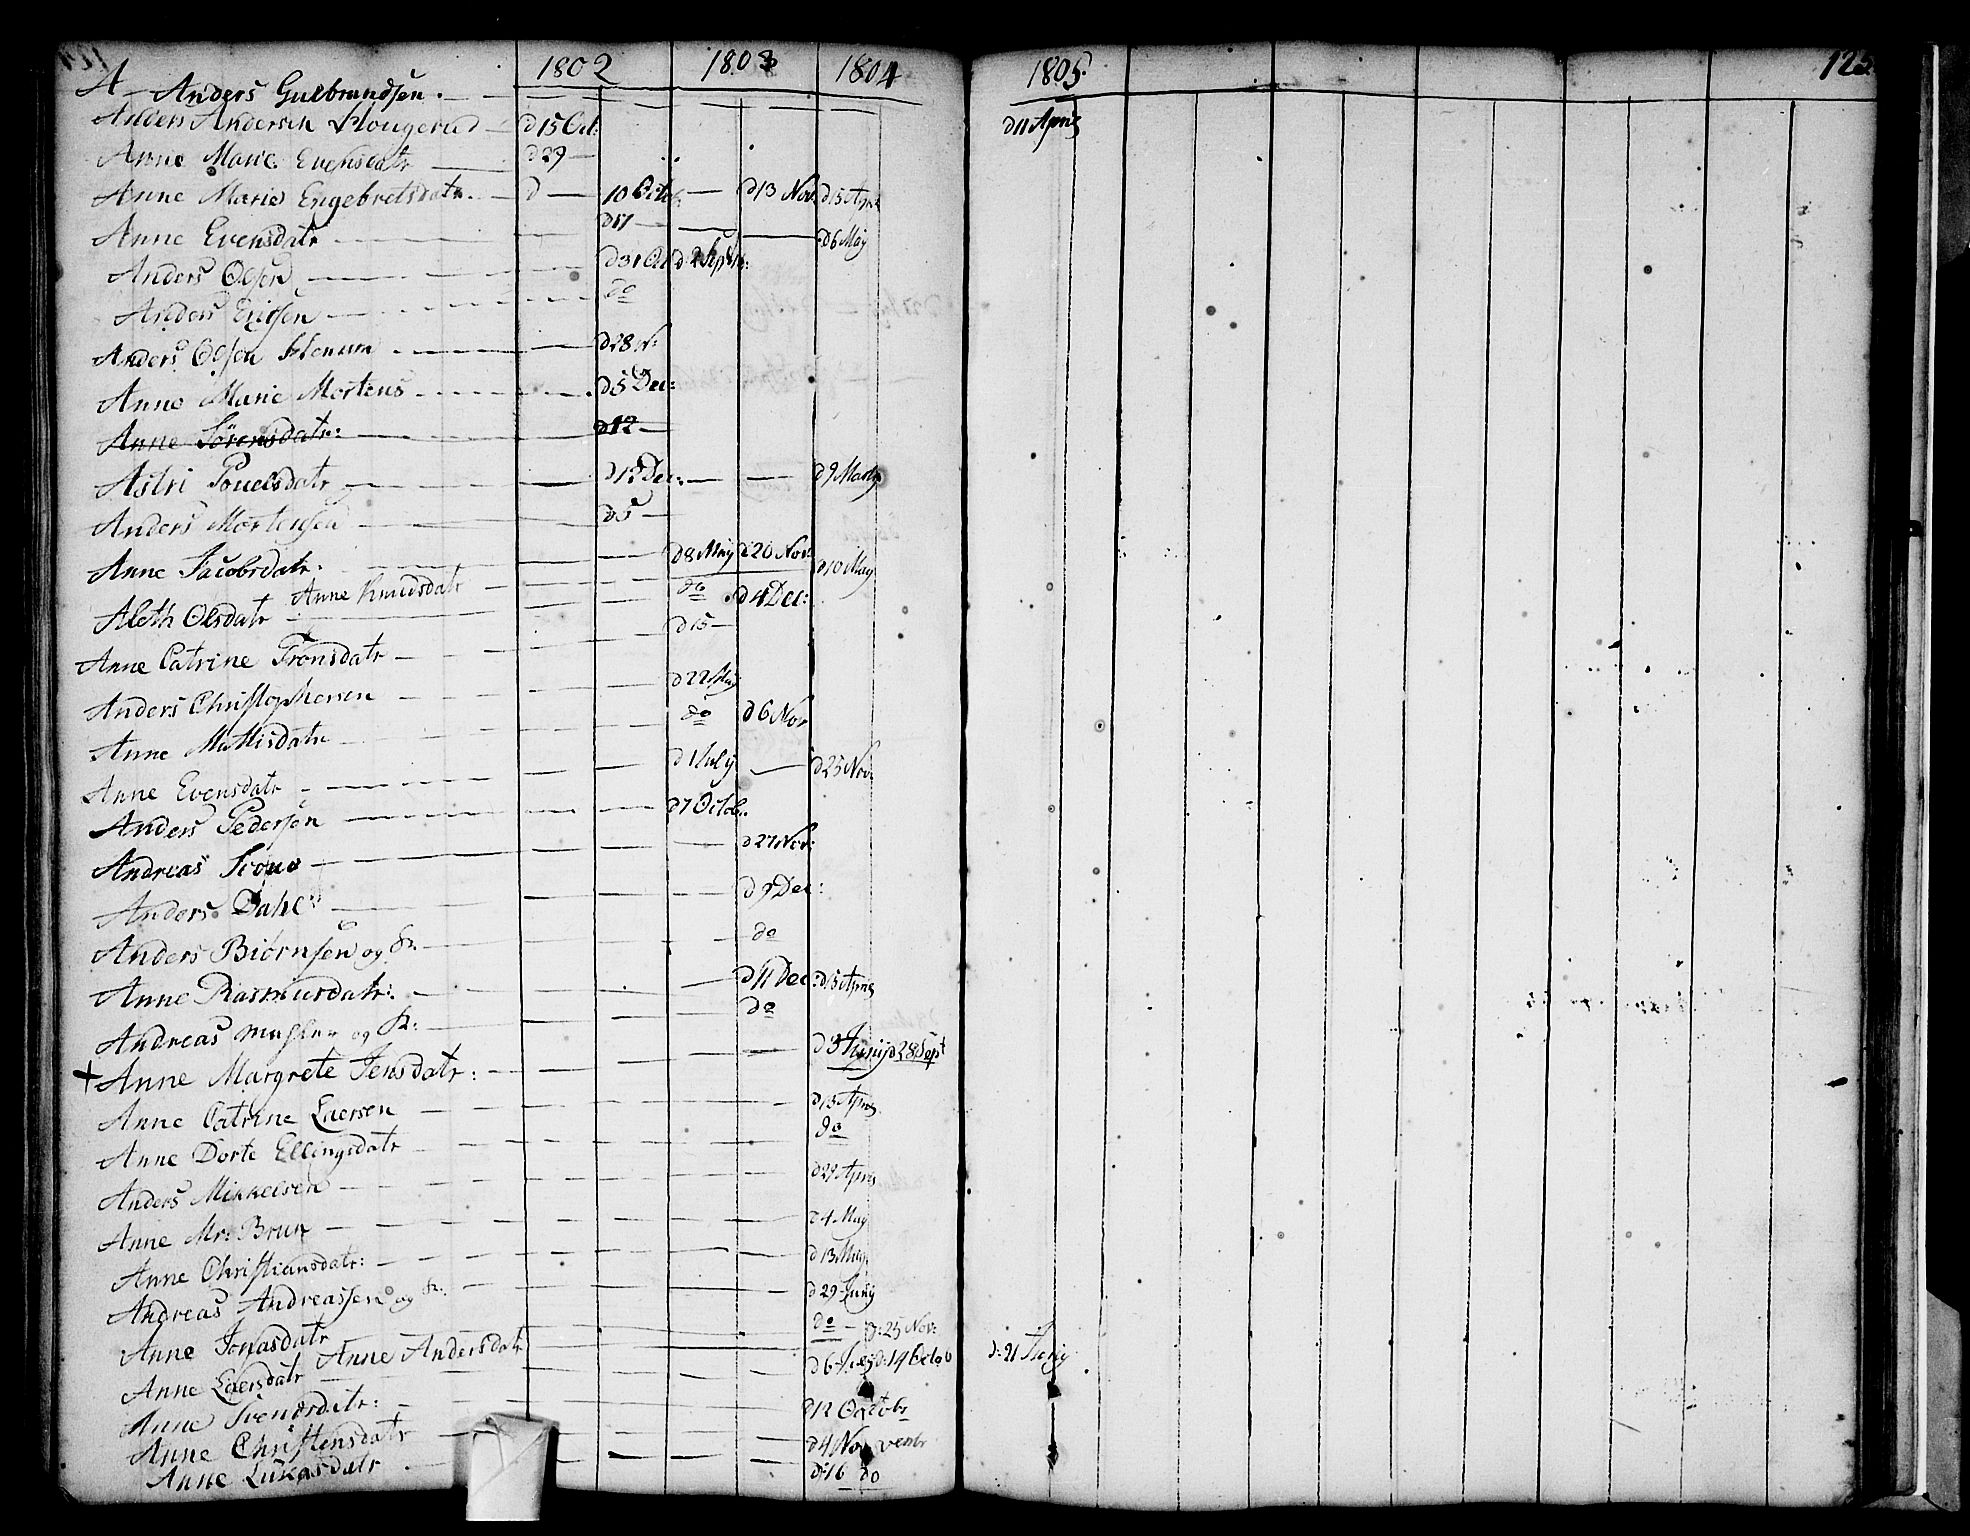 1802 1803 1804 1805
A - Anders Gulbrandsen
Anders Andersen Hougerud - d 15 Oct: d 11 April
Anne Marie Evensdatr d 29 —
Anne Marie Engebretsdatr. - d — 10 Octob. — d 13 Nov: d 15 Apr
Anne Evensdatr d 17 — d 6 May
Anders Olsen d 31 Oct d 2 Septb:
Anders Ericsen do
Anders Olsen d 28 N:
Anne Marie Mortens d 5 Dec:
Anne Sørensdatr: d 12 —
Astri Pouelsdatr d 12 Dec: — — d 9 Marty
Anders Mortensen d 5 —
Anne Jacobsdatr. d 8 May d 20 Nov: d 10 May
Anne Knudsdatr do d 4 Dec:
Aleth Olsdatr d 15 —
Anne Catrine Tronsdatr
Anders Christophersen d 22 May
Anne Mattisdatr do d 6 Nov
Anne Evensdatr d 1 July — d 25 Nov:
Anders Pedersen d 7 Octob:
Andreas d 27 Nov:
Anders Dahl d 9 Dec:
Anders Biørnsen og K. do
Anne Rasmusdatr: d 11 Dec: d 15 April
Andreas og K: do
† Anne Margrete Jensdatr: d 3 Junij d 28 Sept
Anne Catrine Laersen d 15 April
Anne Dorte Ellingsdatr do
Anders Mikkelsen d 27 April
Anne Mr: Brun d 4 May
Anne Christiansdatr: d 13 May
Andreas Andreassen og K: d 29 Juny
Anne Jonasdatr do - d: 25 Nov:
Anne Andersdatr d 14 Octob d: 21 Juny
Anne Laersdatr
Anne Svendsdatr: d 12 Octobr
Anne Christensdatr d 4 November
Anne Lukasdatr d: 16 do